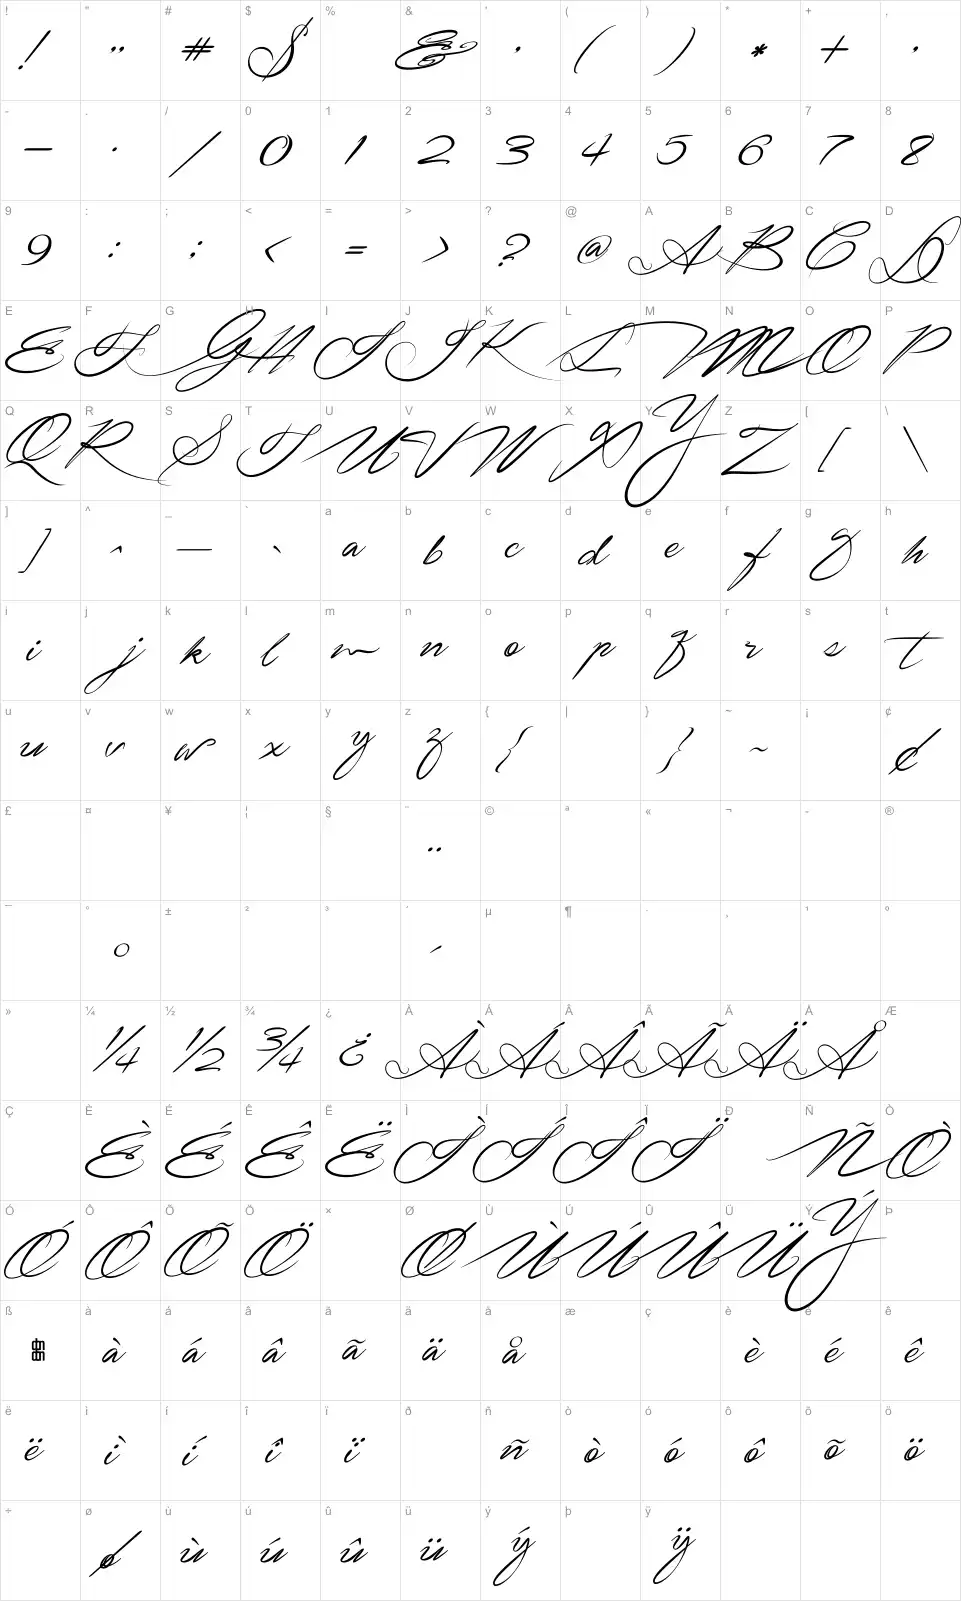 ! " # $ % & ' ( ) * + ,
! " # $ & ' ( ) * + ,
- . / 0 1 2 3 4 5 6 7 8
- . / 0 1 2 3 4 5 6 7 8
9 : ; < = > ? @ A B C D
9 : ; < = > ? @ A B C D
E F G H I J K L M N O P
E F G H I J K L M N O P
Q R S T U V W X Y Z [ \
Q R S T U V W X Y Z [ \
] ^ _ ` a b c d e f g h
] ^ _ ` a b c d e f g h
i j k l m n o p q r s t
i j k l m n o p q r s t
u v w x y z { | } ~ ¡ ¢
u v w x y z { } ~ ¢
£ ¤ ¥ ¦ § ¨ © ª « ¬ - ®
¨
¯ ° ± ² ³ ´ µ ¶ · ¸ ¹ º
° ´
» ¼ ½ ¾ ¿ À Á Â Ã Ä Å Æ
¼ ½ ¾ ¿ À Á Â Ã Ä Å
Ç È É Ê Ë Ì Í Î Ï Ð Ñ Ò
È É Ê Ë Ì Í Î Ï Ñ Ò
Ó Ô Õ Ö × Ø Ù Ú Û Ü Ý Þ
Ó Ô Õ Ö Ø Ù Ú Û Ü Ý
ß à á â ã ä å æ ç è é ê
à á â ã ä å è é ê
ë ì í î ï ð ñ ò ó ô õ ö
ë ì í î ï ñ ò ó ô õ ö
÷ ø ù ú û ü ý þ ÿ
ø ù ú û ü ý ÿ